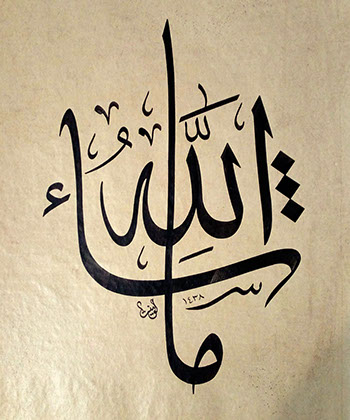 ما شاء الله
١٤٣٨